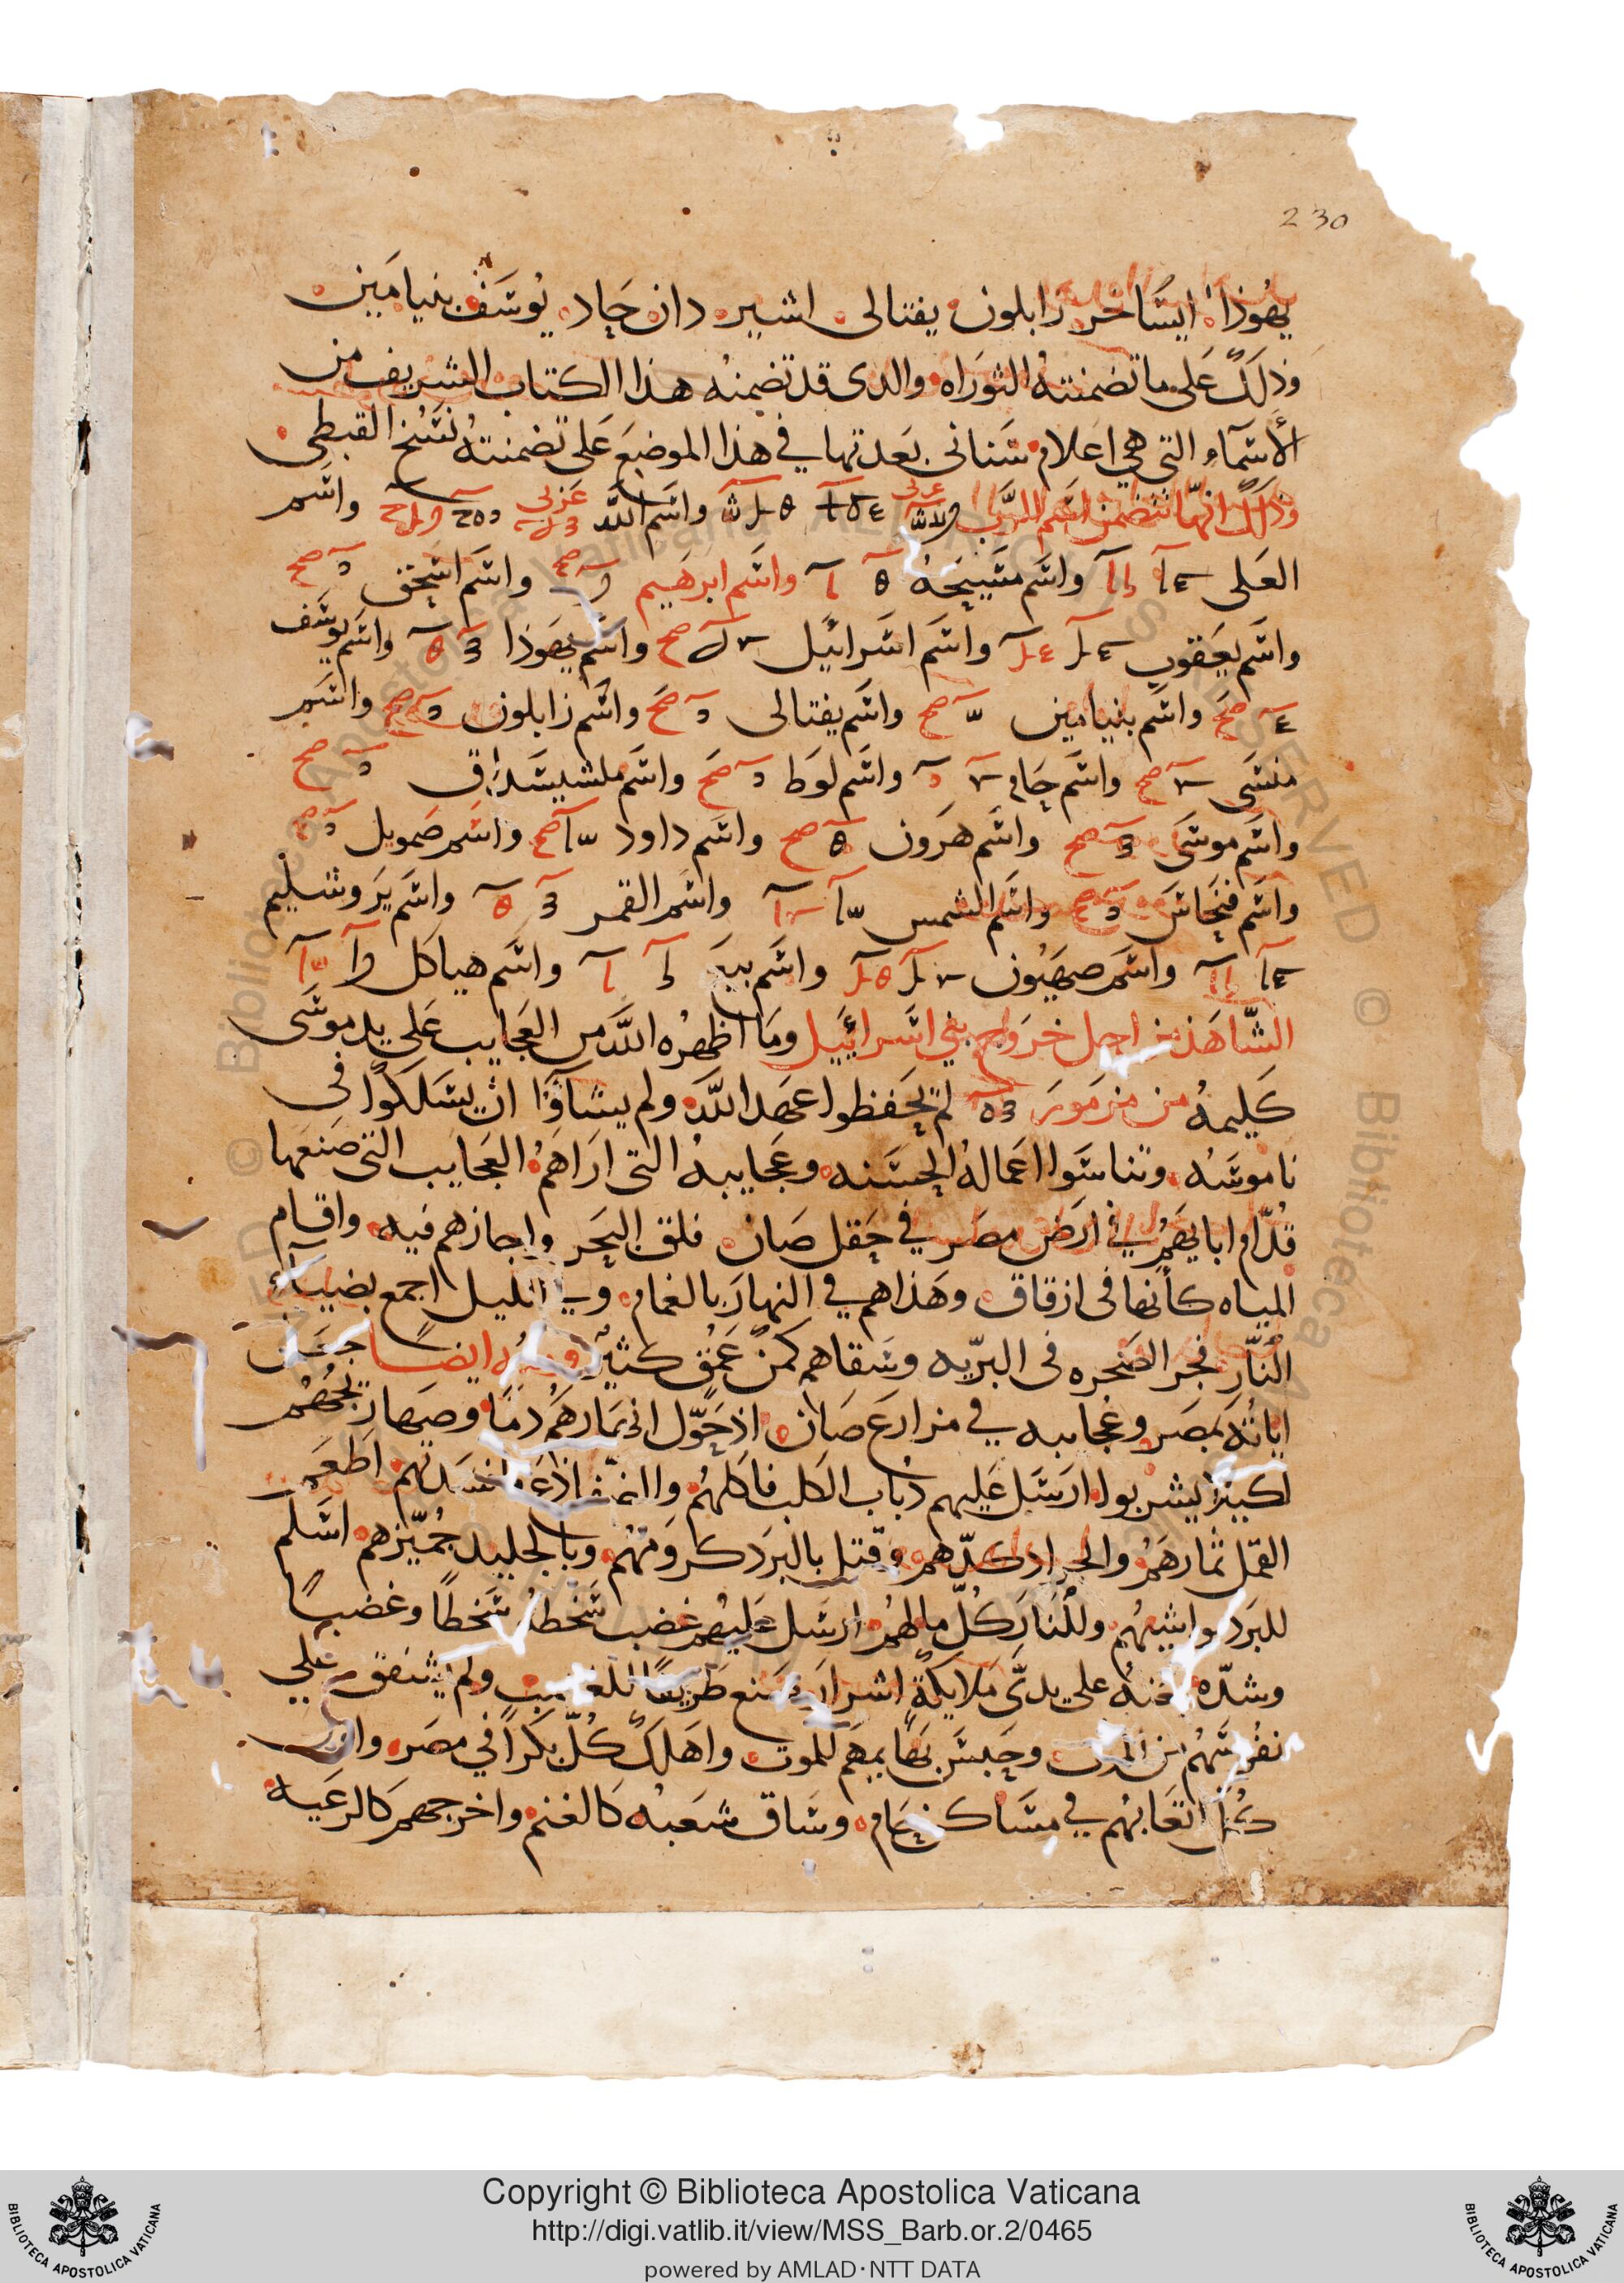 230
يهُوذا ايسَاخر زابلون يفتالى اشير دان جَاد يوسَف بنيامَين
وذلكَ عَلى ما تضمنتهُ التورَاه والدى قد تضمنهُ هذا الكتاب الشريف من
الأسمَآءِ التى هي اعَلام شنانى بعَدتها في هذا الموضعَ عَلى تضمنتهُ نسَخ القبطى
وذلكَ انهّا تتضمن اسَم الرَّب عربى واسَم اللَّه عربى واسَم
العَلى واسَم مسَيحهُ واسَم ابرهَيم واسَم اسَحق
واسَم يعَقوب واسَم اسَرائيل واسَم يهَوذا واسَم يوسَف
واسَم بنيامين واسَم يفتالى واسَم زابلون واسَم
منشَى واسَم حَام واسَم لوَط واسَم ملشيسَداق
واسَم موسَى واسَم هرَون واسَم داود واسَم صَمويل
واسَم فنحَاسَ واسَم الشمس واسَم القمر واسَم يرَوشليم
واسَم صهيَون واسَم بيعَه واسَم هياكل
الشَّاهَد من اجل خروج بني اسَرائيَل ومَا اظهرُه اللَّه من العَجايب عَلي يد موسَى
كَليمهُ من مزمورَ لم يحَفظوا عهَد اللَّه ولم يشاوَا ان يسَلكوُا فى
ناموسَهُ وتناسَوا اعَمالهُ الحسَنه وعَجايبهُ التى ارَاهَمُ العَجايب التى صَنعَها
قُدّام ابايهَمُ في ارَض مصَر في حَقل صَان فلق البحَر واجازهم فيه واقام
المياه كأنها فى ازقاق وهَداهم في النهارَ بالغمام وفي الليل اجمع بضياءِ
النَّار فجر الصَخره فى البرّيه وسَقاهم كمن عَمق كثير ومنهُ ايضًا جعَل
اياتهَ بمصَر وعَجايبه في مزارعَ صَان اذ حَوّل انهَارهمُ دمًا وصهاريجهُمُ
لكيلا يشربوا ارسَل عَليهم دباب الكلب فاكلهمُ والضفادعَ افسَدتهم اطعَم
القمل ثمارهَمُ والجراد كدّهم وقتل بالبرَد كرومهُم وبالجليد جُمّيزهم اسَلم
للبرَد مواشيهُم وللنارَ كُلّ مالهم ارسَل عَليهم غضب سَخطهُ سَخطًا وغضبًا
وشدّه بعثهُ على يدىَّ ملايكَة اشرار صنع طريقًا للغضب ولم يشفق علي
نفُوسَهُم من الموت وحَبسَ بهَايمهَم للموت واهَلكَ كُلّ بكرًا في مصَر واول
كل اتعَابهُم في مسَاكن حَام وسَاق شعَبهُ كالغنم واخرجهم كالرعَيه
Copyright © Biblioteca Apostolica Vaticana
http://digi.vatlib.it/view/MSS_Barb.or.2/0465
powered by AMLAD·NTT DATA
BIBLIOTECA APOSTOLICA VATICANA
BIBLIOTECA APOSTOLICA VATICANA